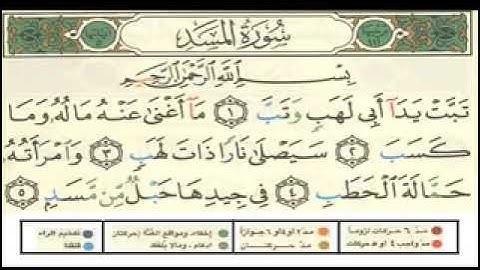 سُورَةُ المَسَدِ
بِسْمِ اللَّهِ الرَّحْمَٰنِ الرَّحِيمِ
تَبَّتْ يَدَآ أَبِى لَهَبٍ وَتَبَّ ١ مَآ أَغْنَىٰ عَنْهُ مَالُهُۥ وَمَا
كَسَبَ ٢ سَيَصْلَىٰ نَارًا ذَاتَ لَهَبٍ ٣ وَٱمْرَأَتُهُۥ
حَمَّالَةَ ٱلْحَطَبِ ٤ فِى جِيدِهَا حَبْلٌ مِّن مَّسَدٍۭ ٥
مدّ ٦ حركات لزوماً مدّ ٢ أو ٤ أو ٦ جوازاً إخفاء، ومواقع الغنّة (حركتان) تفخيم الراء
مدّ واجب ٤ أو ٥ حركات مدّ حركتان إدغام، وما لا يلفظ قلقلة